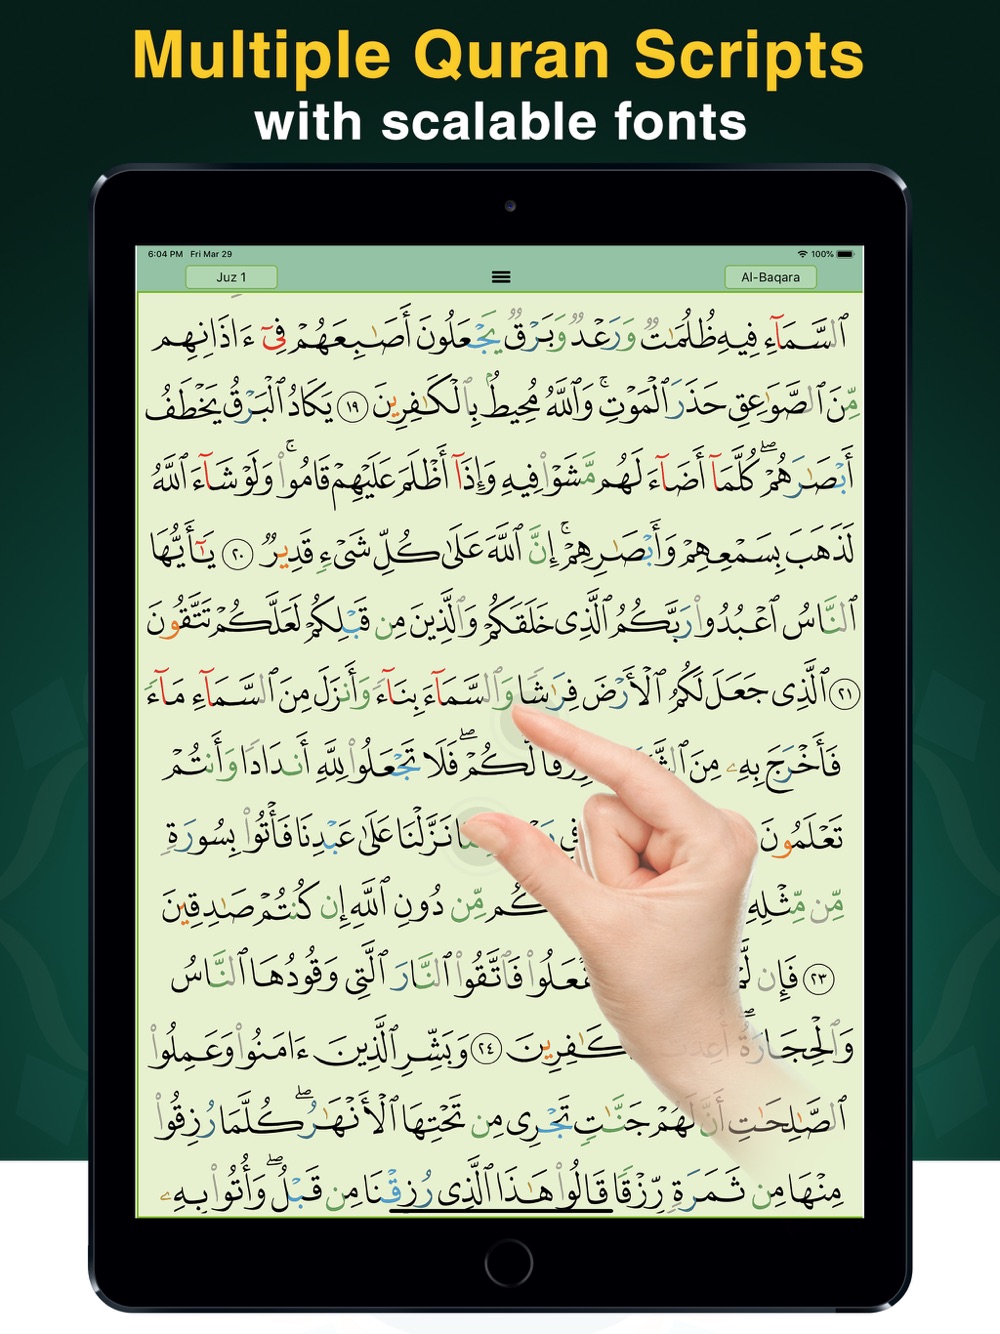 Multiple Quran Scripts
with scalable fonts
6:04 PM Fri Mar 29
100%
Juz 1
Al-Baqara
ٱلسَّمَآءِ فِيهِ ظُلُمَٰتٌ وَرَعْدٌ وَبَرْقٌ يَجْعَلُونَ أَصَٰبِعَهُمْ فِىٓ ءَاذَانِهِم
مِّنَ ٱلصَّوَٰعِقِ حَذَرَ ٱلْمَوْتِ ۚ وَٱللَّهُ مُحِيطٌۢ بِٱلْكَٰفِرِينَ ١٩ يَكَادُ ٱلْبَرْقُ يَخْطَفُ
أَبْصَٰرَهُمْ ۖ كُلَّمَآ أَضَآءَ لَهُم مَّشَوْا۟ فِيهِ وَإِذَآ أَظْلَمَ عَلَيْهِمْ قَامُوا۟ ۚ وَلَوْ شَآءَ ٱللَّهُ
لَذَهَبَ بِسَمْعِهِمْ وَأَبْصَٰرِهِمْ ۚ إِنَّ ٱللَّهَ عَلَىٰ كُلِّ شَىْءٍ قَدِيرٌ ٢٠ يَٰٓأَيُّهَا
ٱلنَّاسُ ٱعْبُدُوا۟ رَبَّكُمُ ٱلَّذِى خَلَقَكُمْ وَٱلَّذِينَ مِن قَبْلِكُمْ لَعَلَّكُمْ تَتَّقُونَ
٢١ ٱلَّذِى جَعَلَ لَكُمُ ٱلْأَرْضَ فِرَٰشًا وَٱلسَّمَآءَ بِنَآءً وَأَنزَلَ مِنَ ٱلسَّمَآءِ مَآءً
فَأَخْرَجَ بِهِۦ مِنَ لَّكُمْ ۖ فَلَا تَجْعَلُوا۟ لِلَّهِ أَندَادًا وَأَنتُمْ
تَعْلَمُونَ فِى نَزَّلْنَا عَلَىٰ عَبْدِنَا فَأْتُوا۟ بِسُورَةٍ
مِّن مِّثْلِهِ مِّن دُونِ ٱللَّهِ إِن كُنتُمْ صَٰدِقِينَ
٢٣ فَإِن لَّمْ فَٱتَّقُوا۟ ٱلنَّارَ ٱلَّتِى وَقُودُهَا ٱلنَّاسُ
وَٱلْحِجَارَةُ ۖ أُعِدَّتْ ٢٤ وَبَشِّرِ ٱلَّذِينَ ءَامَنُوا۟ وَعَمِلُوا۟
ٱلصَّٰلِحَٰتِ أَنَّ لَهُمْ جَنَّٰتٍ تَجْرِى مِن تَحْتِهَا ٱلْأَنْهَٰرُ ۖ كُلَّمَا رُزِقُوا۟
مِنْهَا مِن ثَمَرَةٍ رِّزْقًا قَالُوا۟ هَٰذَا ٱلَّذِى رُزِقْنَا مِن قَبْلُ ۖ وَأُتُوا۟ بِهِۦ